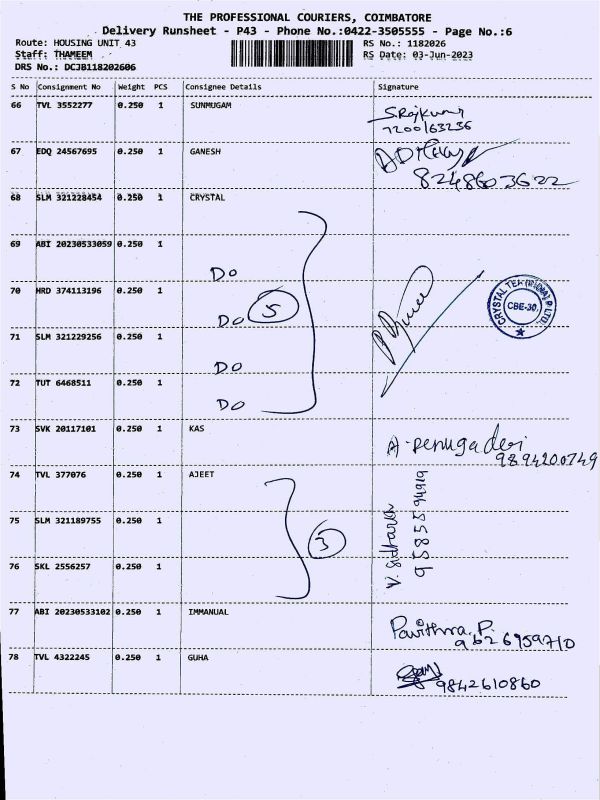 THE PROFESSIONAL COURIERS, COIMBATORE
Delivery Runsheet - P43 - Phone No.:0422-3505555 - Page No.:6
Route: HOUSING UNIT 43 RS No.: 1182026
Staff: THAMEEM RS Date: 03-Jun-2023
DRS No.: DCJB118202606
S No Consignment No Weight PCS Consignee Details Signature
66 TVL 3552277 0.250 1 SUNMUGAM
7200163236
67 EDQ 24567695 0.250 1 GANESH
8248603622
68 SLM 321228454 0.250 1 CRYSTAL
69 ABI 20230533059 0.250 1
Do
70 HRD 374113196 0.250 1
Do 5
CRYSTAL TEA (INDIA) P. LTD.
CBE-30.
71 SLM 321229256 0.250 1
Do
72 TUT 6468511 0.250 1
Do
73 SVK 20117101 0.250 1 KAS
A. Renugaderi
9894200749
74 TVL 377076 0.250 1 AJEET
75 SLM 321189755 0.250 1
3
9585594919
76 SKL 2556257 0.250 1
77 ABI 20230533102 0.250 1 IMMANUAL
Pavithra. P.
9626959710
78 TVL 4322245 0.250 1 GUHA
9842610860